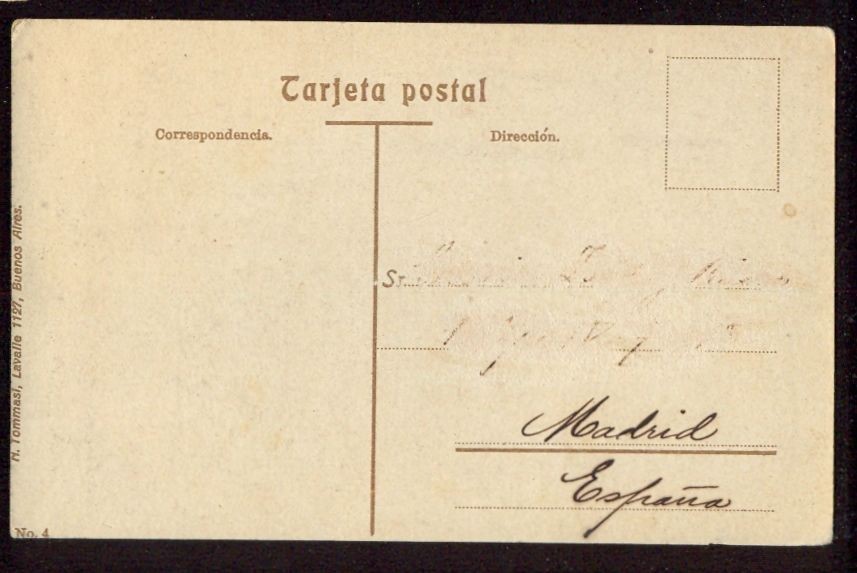 Tarjeta postal
Correspondencia.
Dirección.
N. Tommasi, Lavalle 1127, Buenos Aires.
Sr.
Madrid
España
No. 4